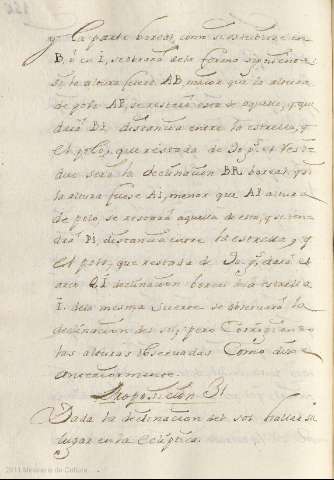 y la parte boreal, como si estubiere en
B, ó en I, se obrará de la forma siguiente:
si la altura fuese AB, maior que la altura
de polo AP, se restará esta de aquella, y que
dará BP distancia entre la estrella, y
el polo, que restada de 90 g.s el res
duo será la declinacion BR boreal, y si
la altura fuese AI, menor que AP altura
de polo, se restará aquella de esta, y se ten
drá PI, distancia entre la estrella, y
el polo, que restada de 90 g.s dará el
arco QI declinacion boreal de la estrella
I. de la misma suerte se observará la
declinacion del sol, pero corrigiendo
las alturas observadas como dixe
anteriormente.
Proposicion 31
Dada la declinacion del sol hallar su
lugar en la ecliptica.
2011 Ministerio de Cultura